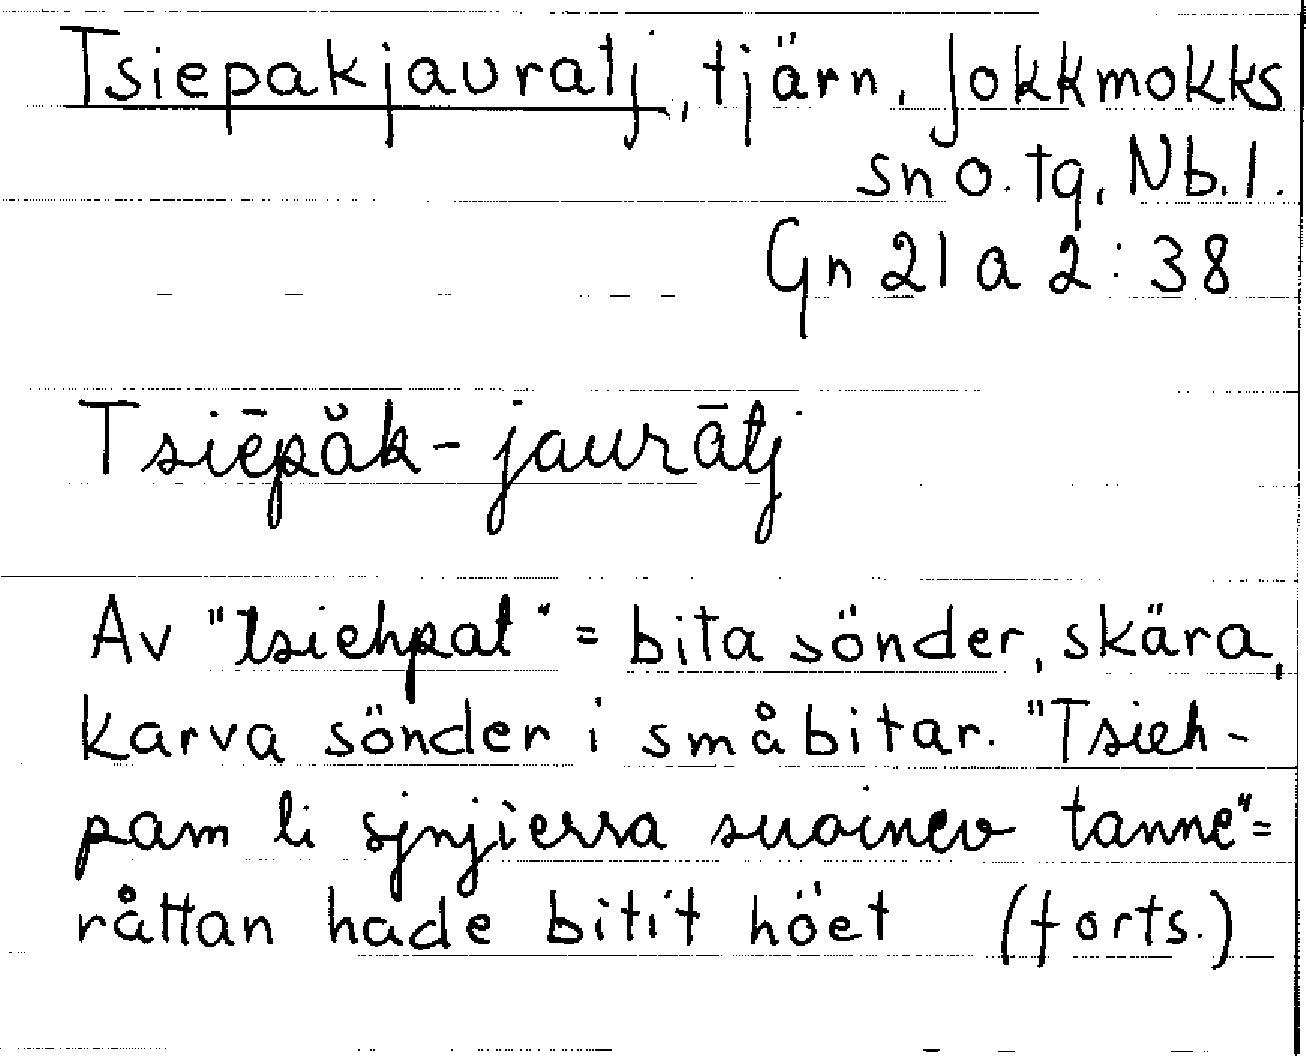 Tsiepakjauratj, tjärn, Jokkmokks
sn o. tg, Nb. l.
Gn 21 a 2:38
Tsiēpăk-jaurātj
Av "tsiehpat" = bita sönder, skära,
karva sönder i småbitar. "Tsieh-
pam li sjnjierra suoinev tanne" =
råttan hade bitit höet (forts.)